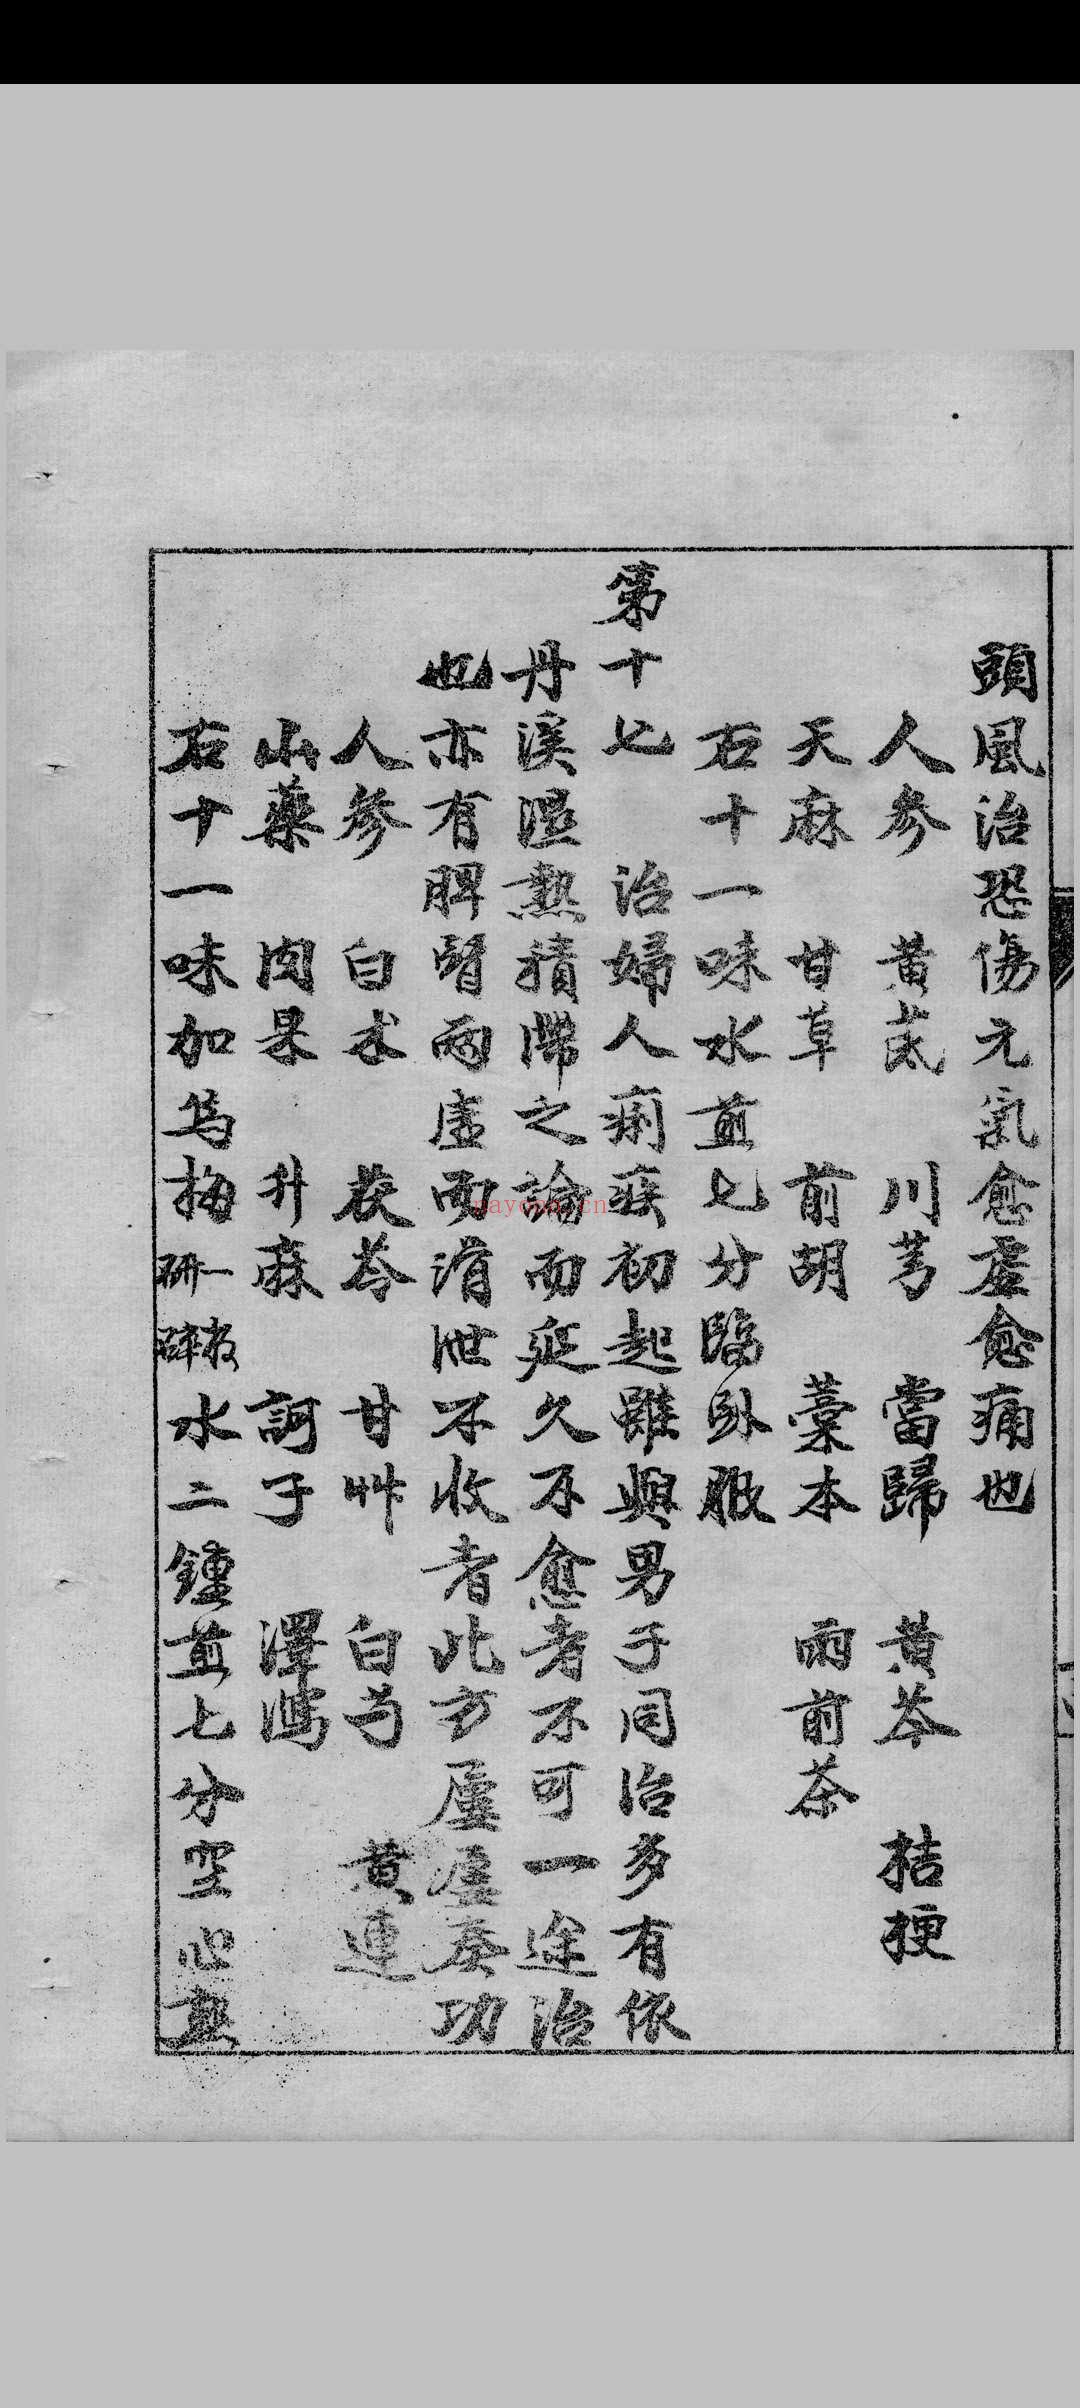 頭風治恐傷元氣愈虛愈痛也
人參 黃芪 川芎 當歸 黃芩 桔梗
天麻 甘草 前胡 藁本 雨前茶
右十一味水煎七分臨卧服
第十七 治婦人痢疾初起雖與男子同治多有依
丹溪濕熱積滯之論而延久不愈者不可一途治
也亦有脾腎兩虛而滑泄不收者此方屢屢奏功
人參 白朮 茯苓 甘艸 白芍 黃連
山藥 肉果 升麻 訶子 澤瀉
右十一味加烏梅一枚研碎水二鍾煎七分空心熱